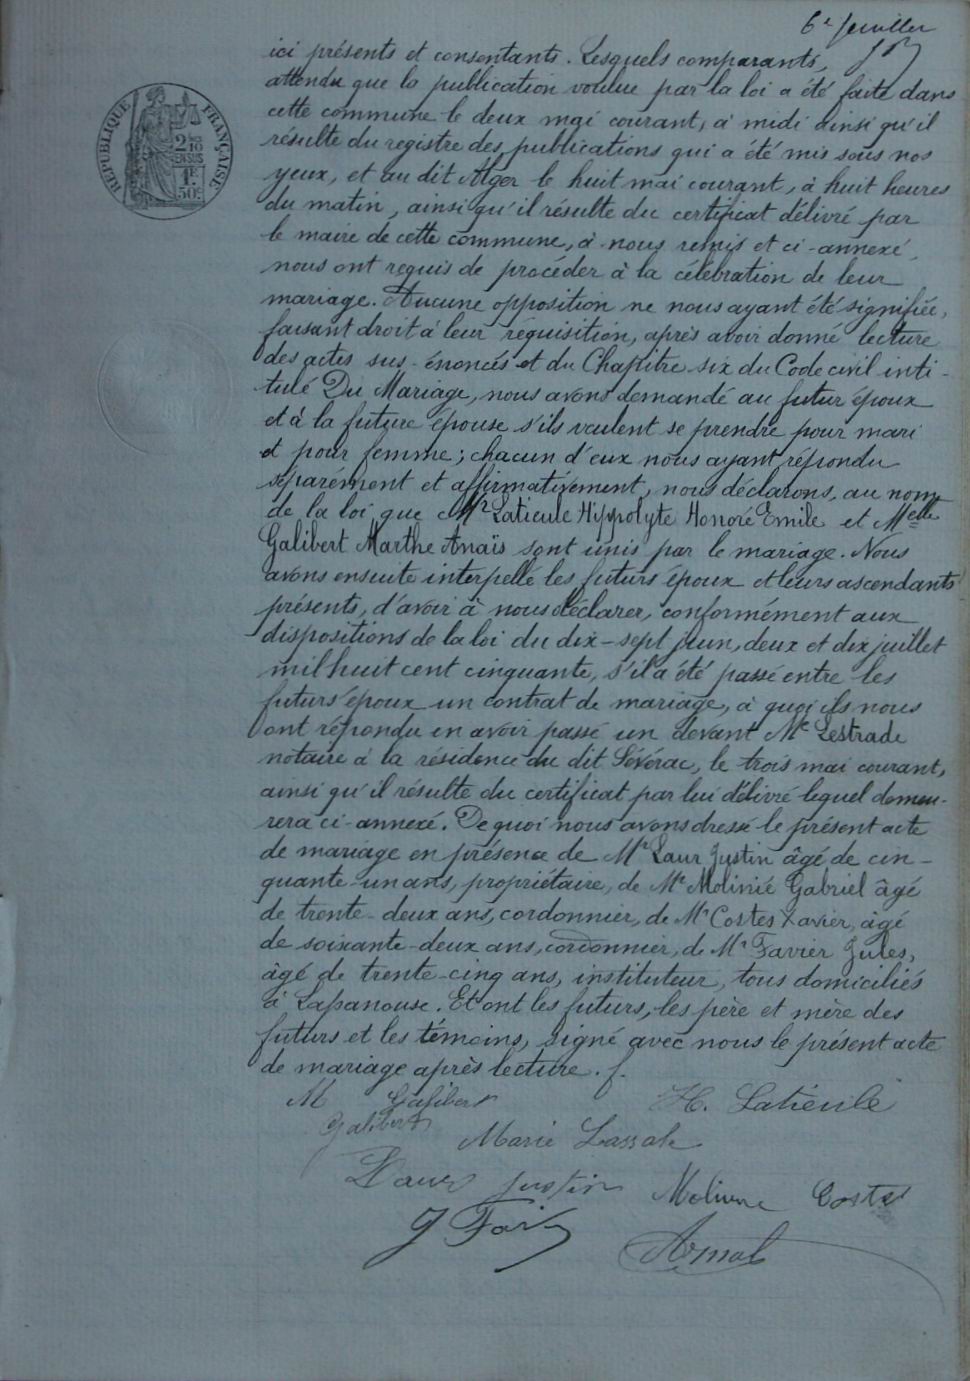 6e feuillet
ici présents et consentants. Lesquels comparants,
attendu que la publication voulue par la loi a été faite dans
cette commune le deux mai courant, à midi ainsi qu'il
résulte du registre des publications qui a été mis sous nos
yeux, et au dit Alger le huit mai courant, à huit heures
du matin, ainsi qu'il résulte du certificat délivré par
le maire de cette commune, à nous remis et ci-annexé,
nous ont requis de procéder à la célébration de leur
mariage. Aucune opposition ne nous ayant été signifiée,
faisant droit à leur réquisition, après avoir donné lecture
des actes sus-énoncés et du Chapitre six du Code civil inti-
tulé Du Mariage, nous avons demandé au futur époux
et à la future épouse s'ils veulent se prendre pour mari
et pour femme; chacun d'eux nous ayant répondu
séparément et affirmativement, nous déclarons, au nom
de la loi que Mr Laticule Hippolyte Honoré Emile et Melle
Galibert Marthe Anaïs sont unis par le mariage. Nous
avons ensuite interpellé les futurs époux et leurs ascendants
présents, d'avoir à nous déclarer, conformément aux
dispositions de la loi du dix-sept juin, deux et dix juillet
mil huit cent cinquante, s'il a été passé entre les
futurs époux un contrat de mariage, à quoi ils nous
ont répondu en avoir passé un devant Me Lestrade
notaire à la résidence du dit Sévérac, le trois mai courant,
ainsi qu'il résulte du certificat par lui délivré lequel demeu-
rera ci-annexé. De quoi nous avons dressé le présent acte
de mariage en présence de Mr Laur Justin âgé de cin-
quante-un ans, propriétaire, de Mr Molinié Gabriel âgé
de trente-deux ans, cordonnier, de Mr Costes Xavier, âgé
de soixante-deux ans, cordonnier, de Mr Favier Jules,
âgé de trente-cinq ans, instituteur, tous domiciliés
à Lapanouse. Et ont les futurs, les père et mère des
futurs et les témoins, signé avec nous le présent acte
de mariage après lecture.
M Galibert H. Laticule
Galibert Marie Lassale
Laur Justin Molinié Costes
J Favier Arnal
RÉPUBLIQUE FRANÇAISE
2/10
EN SUS
1F.
50c.